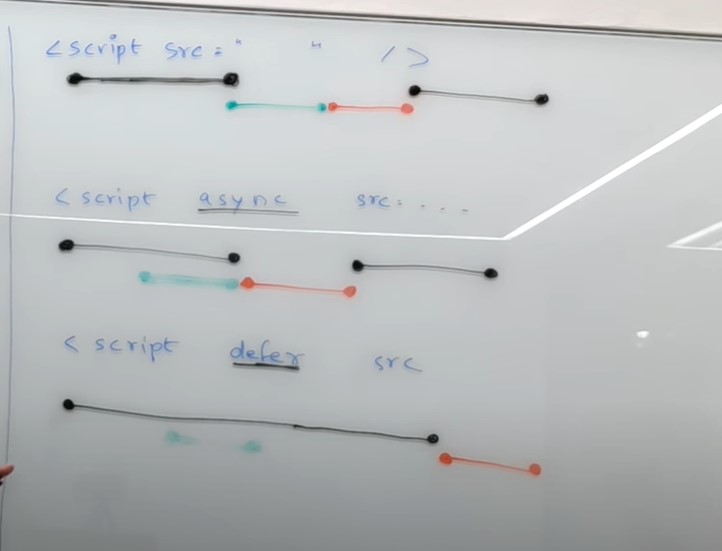 <script src="      " />
<script async src= ....
<script defer src